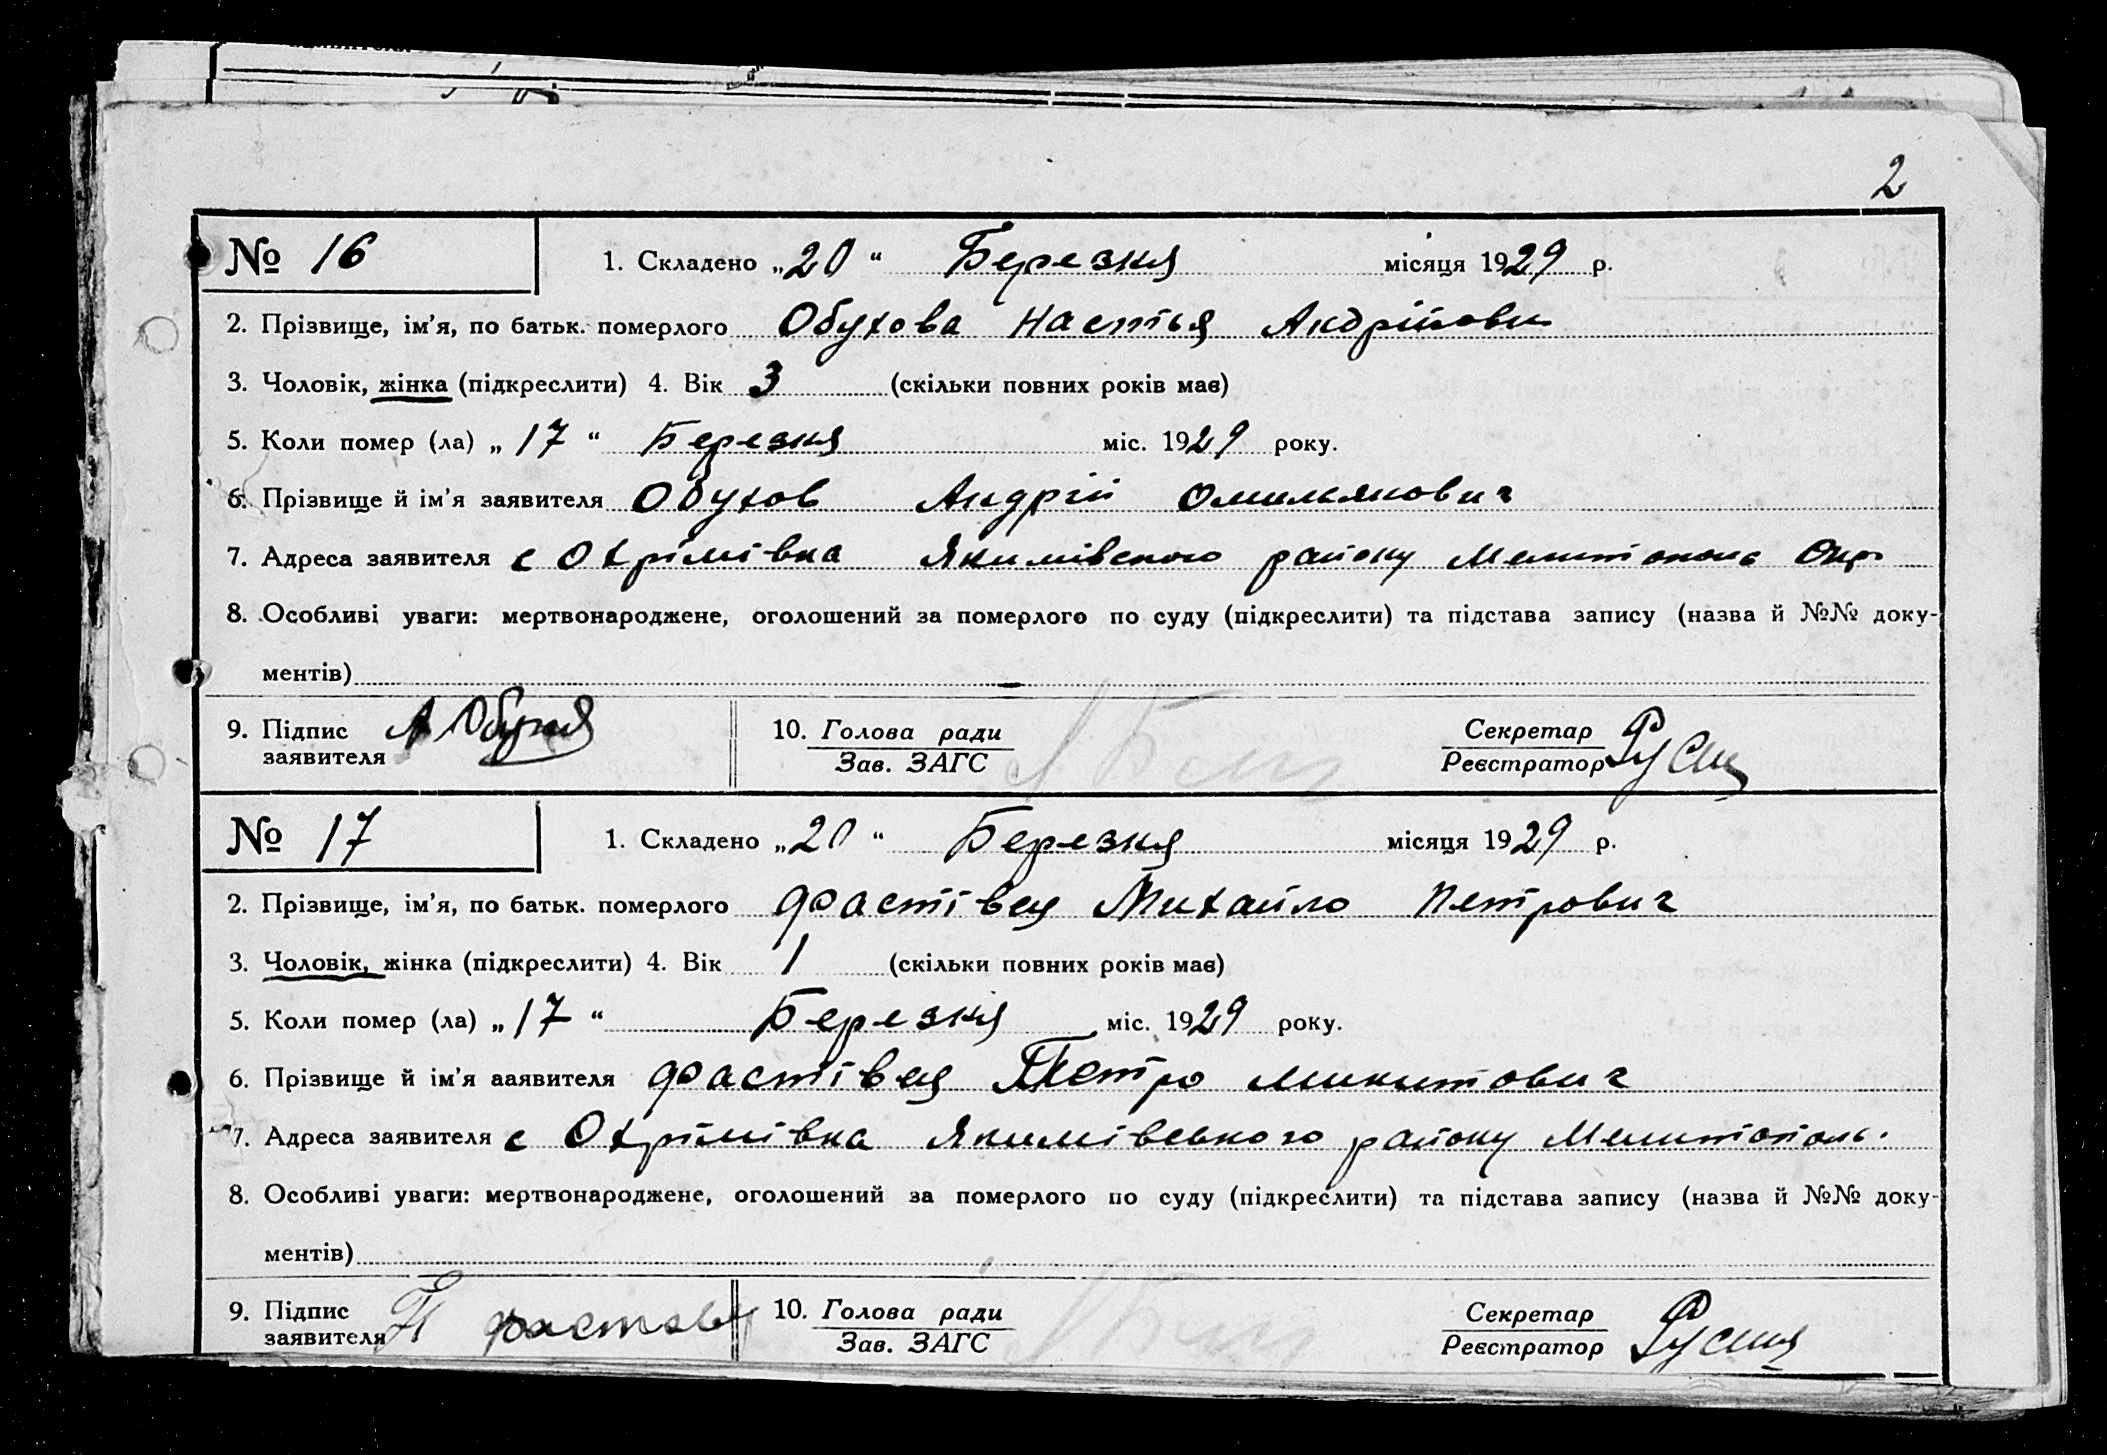 2
№ 16 1. Складено „20“ Березня місяця 1929 р.
2. Прізвище, ім’я, по батьк. померлого Обухова Настья Андрійовн
3. Чоловік, жінка (підкреслити) 4. Вік 3 (скільки повних років має)
5. Коли помер (ла) „17“ Березня міс. 1929 року.
6. Прізвище й ім’я заявителя Обухов Андрій Омельянович
7. Адреса заявителя с Охрімівка Якимівського району Мелитополь Окр
8. Особливі уваги: мертвонароджене, оголошений за померлого по суду (підкреслити) та підстава запису (назва й №№ доку-
ментів)
9. Підпис 10. Голова ради Секретар
заявителя Зав. ЗАГС Реєстратор
№ 17 1. Складено „20“ Березня місяця 1929 р.
2. Прізвище, ім’я, по батьк. померлого Фастівец Михайло Петрович
3. Чоловік, жінка (підкреслити) 4. Вік 1 (скільки повних років має)
5. Коли помер (ла) „17“ Березня міс. 1929 року.
6. Прізвище й ім’я заявителя Фастівец Петро Микитович
7. Адреса заявителя с Охрімівка Якимівського району Мелитополь.
8. Особливі уваги: мертвонароджене, оголошений за померлого по суду (підкреслити) та підстава запису (назва й №№ доку-
ментів)
9. Підпис 10. Голова ради Секретар
заявителя Зав. ЗАГС Реєстратор